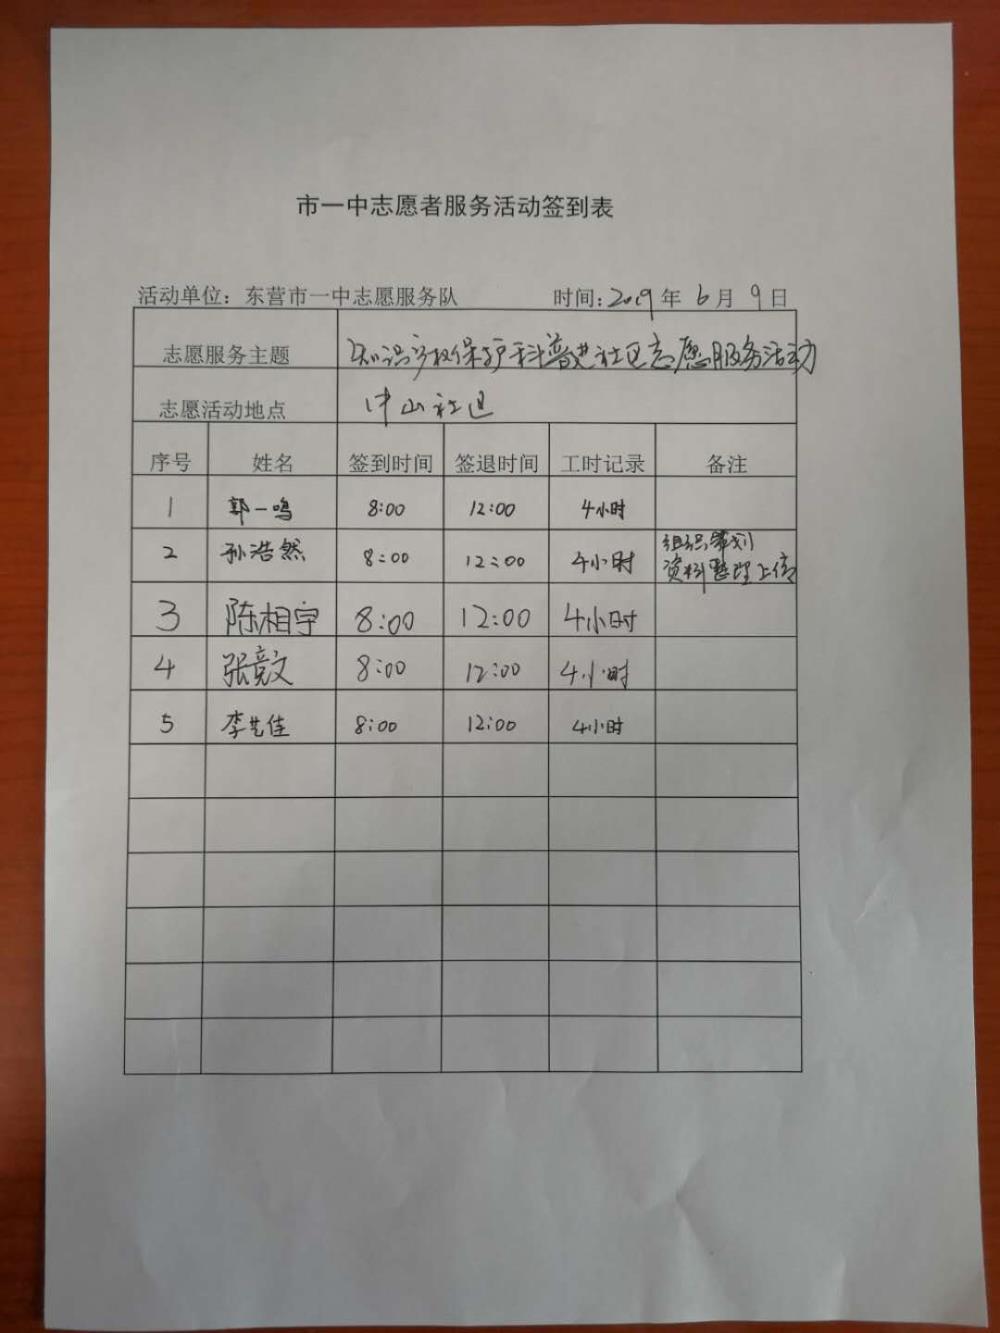 市一中志愿者服务活动签到表
活动单位：东营市一中志愿服务队 时间：2019年6月9日
志愿服务主题 知识产权保护科普进社区志愿服务活动
志愿活动地点 中山社区
序号 姓名 签到时间 签退时间 工时记录 备注
1 郭一鸣 8:00 12:00 4小时
2 孙浩然 8:00 12:00 4小时 组织策划
资料整理上传
3 陈相宇 8:00 12:00 4小时
4 张竞文 8:00 12:00 4小时
5 李艺佳 8:00 12:00 4小时